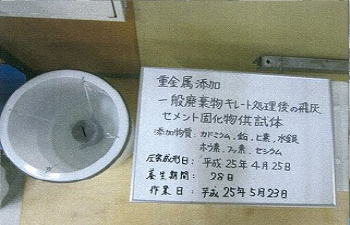 重金属添加
一般廃棄物キレート処理後の飛灰
セメント固化物供試体
添加物質、カドミウム、鉛、ヒ素、水銀
ホウ素、フッ素、セシウム
圧縮成形日：平成25年4月25日
養生期間：28日
作業日：平成25年5月23日